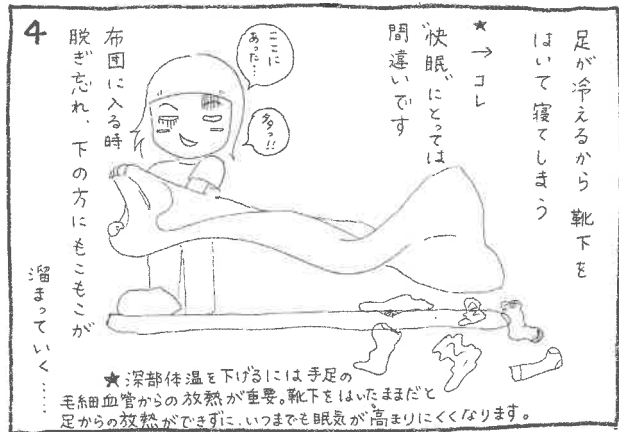 足が冷えるから 靴下を
はいて寝てしまう
★→コレ
“快眠”にとっては
間違いです
ここに
あった…
多っ!!
4
布団に入る時
脱ぎ忘れ、下の方にもこもこが
溜まっていく……
★深部体温を下げるには手足の
毛細血管からの放熱が重要。靴下をはいたままだと
足からの放熱ができずに、いつまでも眠気が高まりにくくなります。